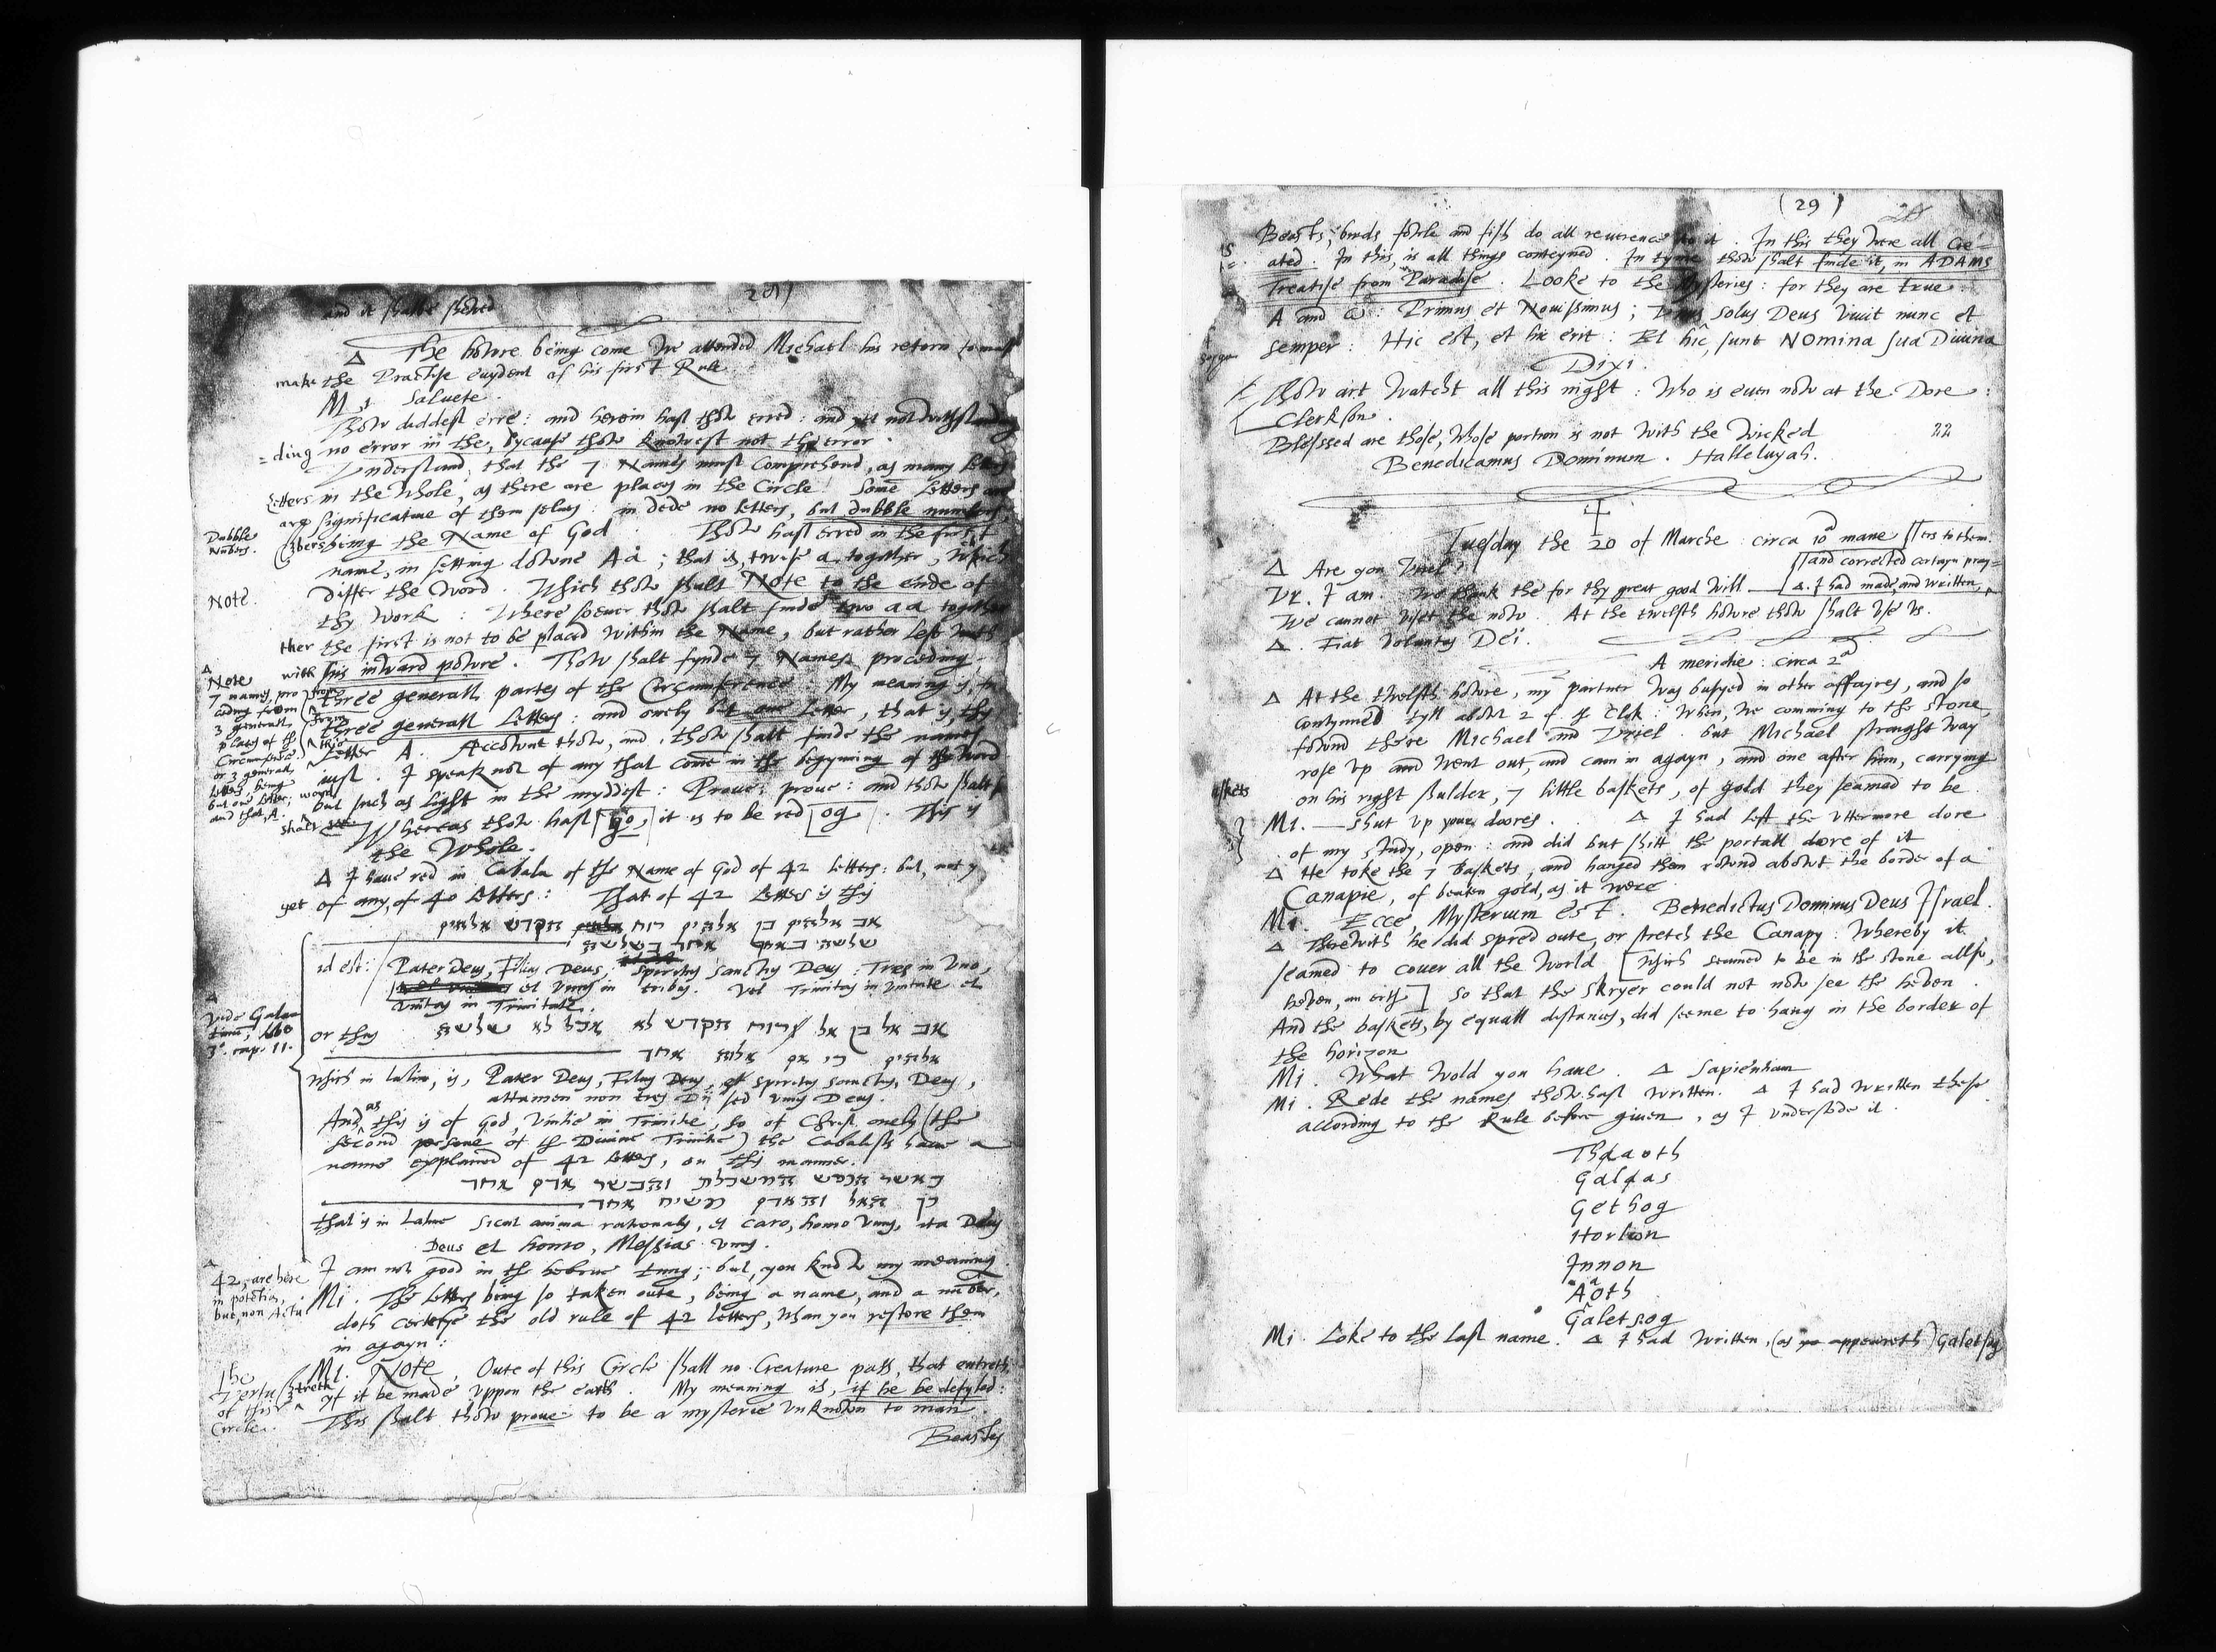 and it shalbe shewed
28)
Δ The howre being come we attended Michael his retorn to make
make the Practise evydent of his first Rule
Mi Saluete.
Thow diddest erre: and herein hast thow erred: and yet notwithstanding
= ding no error in the, bycause thow knowest not the error.
Understand, that the 7 Names must Comprehend, as many letters
letters in the whole, as there are places in the Circle: Some letters are
are significative of them selves: in dede no letters, but dubble numbers,
Dubble
Nũbers.
3bers being the Name of God. Thow hast erred in the first
name, in setting downe Aa; that is, twise a together, which
differ the word. Which thow shalt Note to the ende of
Note.
thy work: Where soever thow shalt finde two aa together
ther the first is not to be placed within the Name, but rather left with
with his inward powre. Thow shalt fynde 7 Names proceding
Δ
Note
7 names, pro
ceding from
3 generall
partes of the
Circumference
or 3 generall
letters, being
but one letter;
and that, A.
from three generall partes of the Circumference My meaning is, from
three generall Letters: and onely but one letter, that is, this
Letter A. Accownt thow, and thow shalt finde the names
just. I speak not of any that come in the begynning of the word
but such as light in the myddest: Prove; prove: and thow shalt
Whereas thow hast go, it is to be red og. This is
the Whole.
Δ I have red in Cabala of the Name of God of 42 letters: but, not y
yet of any, of 40 Letters: That of 42 Letters is this
אב אלהים בן אלהים רוח הקדש אלהים
שלשה באחד אחד בשלשה
id est: Pater Deus, Filius Deus, Spiritus Sanctus Deus: Tres in Uno,
et Unus in tribus. Vel Trinitas in unitate et
Unitas in Trinitate.
Δ
Vide Gala-
tinũ, libº
3º. cap. 11.
or this אב אל בן אל ורוח הקדש לא אבל לא שלשה
אלהים כי אם אלוה אחד
which in latin, is, Pater Deus, Filius Deus, et Spiritus sanctus, Deus,
attamen non tres Dij sed unus Deus.
And as this is of God, Unitie in Trinitie, so of Christ onely (the
second persone of the Divine Trinitie) the Cabalists have a
name explaned of 42 letters, on this manner.
כאשר הנפש המשכלת והבשר אדם אחד
כן האל והאדם משיח אחד
that is in Latine Sicut anima rationalis, et caro, homo unus, ita Deus
Deus et homo, Messias unus.
I am not good in the hebrue tung; but, you know my meaning.
Δ
42, are here
in potẽtia,
but, non Actu
Mi. The Letters being so taken oute, being a name, and a nũber,
doth certefye the old rule of 42 letters, whan you restore them
in agayn:
Mi. Note, Oute of this Circle shall no Creature pass, that entreth
The
Vertu
of this
Circle.
3treth yf it be made uppon the earth. My meaning is, if he be defyled:
This shalt thow prove to be a mysterie unknown to man
Beastes
(29)
Beasts, birds fowle and fish do all reverence to it. In this they were all Cre-
ated. In this, is all things conteyned. In tyme thow shalt finde it, in ADAMS
Treatise from Paradise. Looke to the Mysteries: for they are true:
A and ω: Primus et Novissimus; Unus solus Deus vivit nunc et
semper: Hic est, et hic erit: Et hic, sunt NOmina Sua Divina
Dixi.
Thow art watcht all this night: Who is even now at the Dore:
Clerkson.
Blessed are those, whose portion is not with the wicked
22
Benedicamus Dominum. Halleluyah.
Tuesday the 20 of Marche: circa 10ª mane
Δ Are you Uriel?
Ur. I am. We thank the for thy great good will —
Δ. I had made, and written,
and corrected certayn pray=
ers to them.
We cannot viset the now. At the twelfth howre thow shalt use us.
Δ. Fiat voluntas Dei.
A meridie: circa 2ª
Δ At the twelfth howre, my partner was busyed in other affayres, and so
contynued tyll abowt 2 of ye Clok: when, we comming to the stone
fownd there Michael and Uriel: but Michael straight way
rose up and went out, and cam in agayn, and one after him, carrying
on his right shulder, 7 little baskets, of gold they seamed to be
Mi. — Shut up your doores. Δ I had left the uttermore dore
of my study, open: and did but shitt the portall dore of it
Δ He toke the 7 Baskets, and hanged them rownd abowt the border of a
Canapie, of beaten gold, as it were
Mi. Ecce, Mysterium est. Benedictus Dominus Deus Israel.
Δ Therewith he did spred oute, or stretch the Canapy: Whereby it
seamed to cover all the World [which seamed to be in the stone allso,
heven, an erth] so that the skryer could not now see the heven.
And the baskets, by equall distances, did seeme to hang in the border of
the horizon
Mi. What wold you have. Δ Sapientiam
Mi. Rede the names thow hast written. Δ I had written these
according to the Rule before given, as I understode it.
Thaaoth
Galaas
Gethog
Horlwn
Innon
Aaoth
Galetsog
Mi. Loke to the last name. Δ I had written, (as appeareth) Galetsog